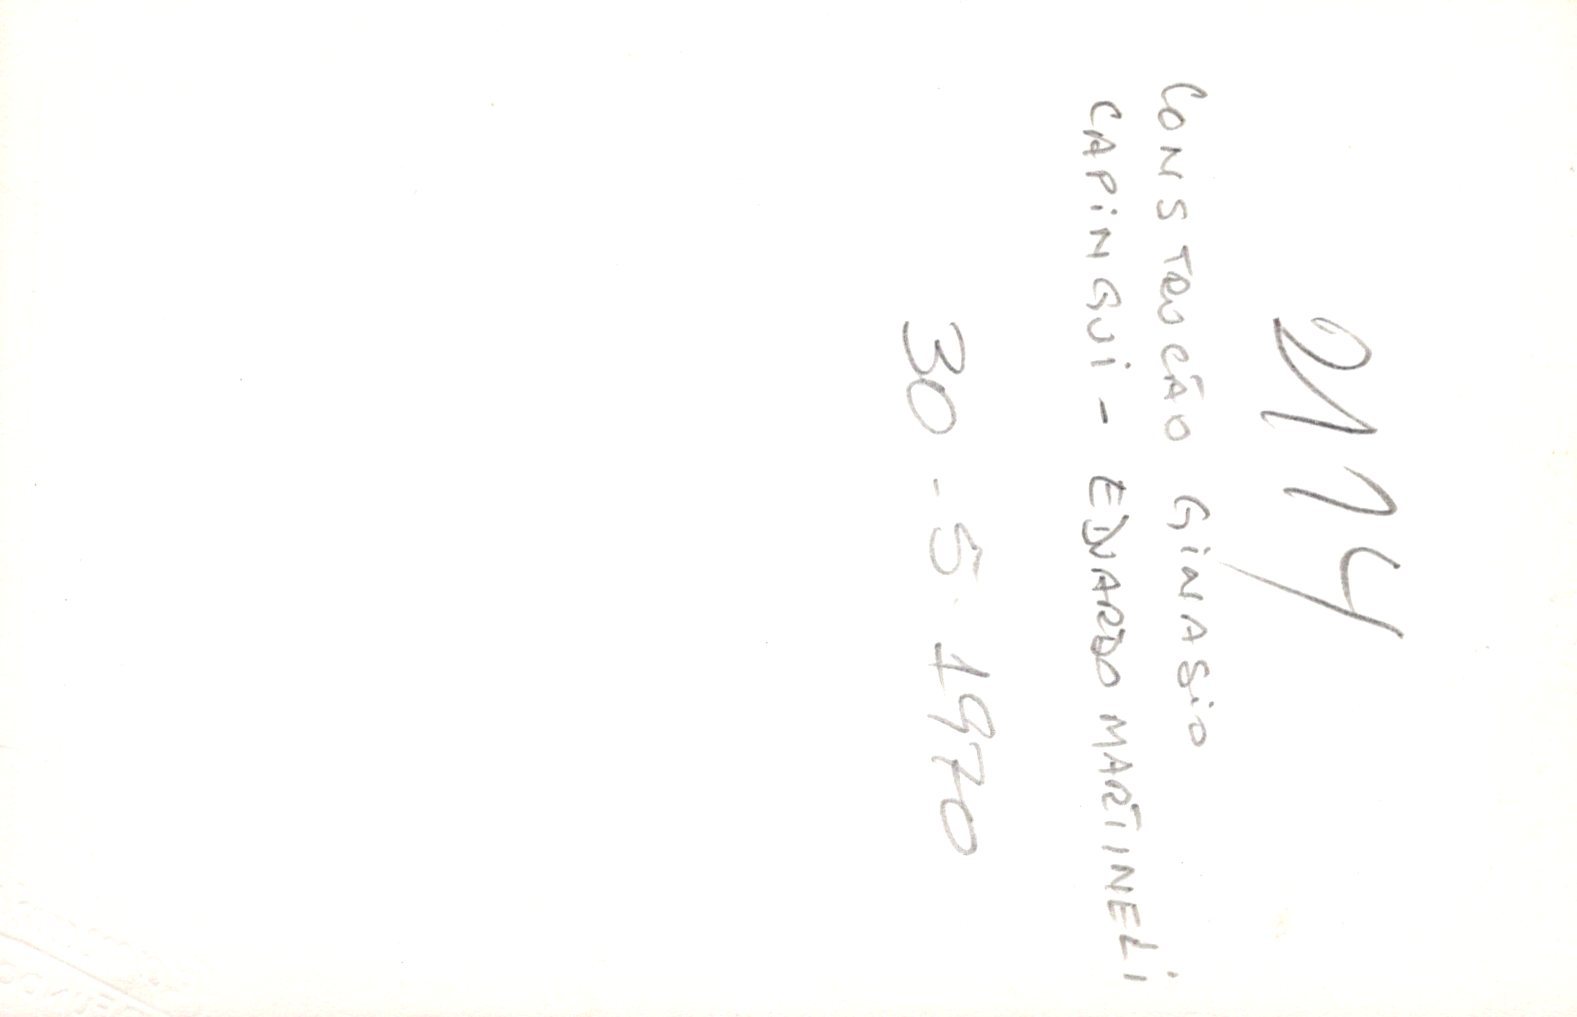 2114
CONSTRUCÃO GiNASiO
CAPiNGUi - EDUARDO MARTINELi
30 - 5 - 1970